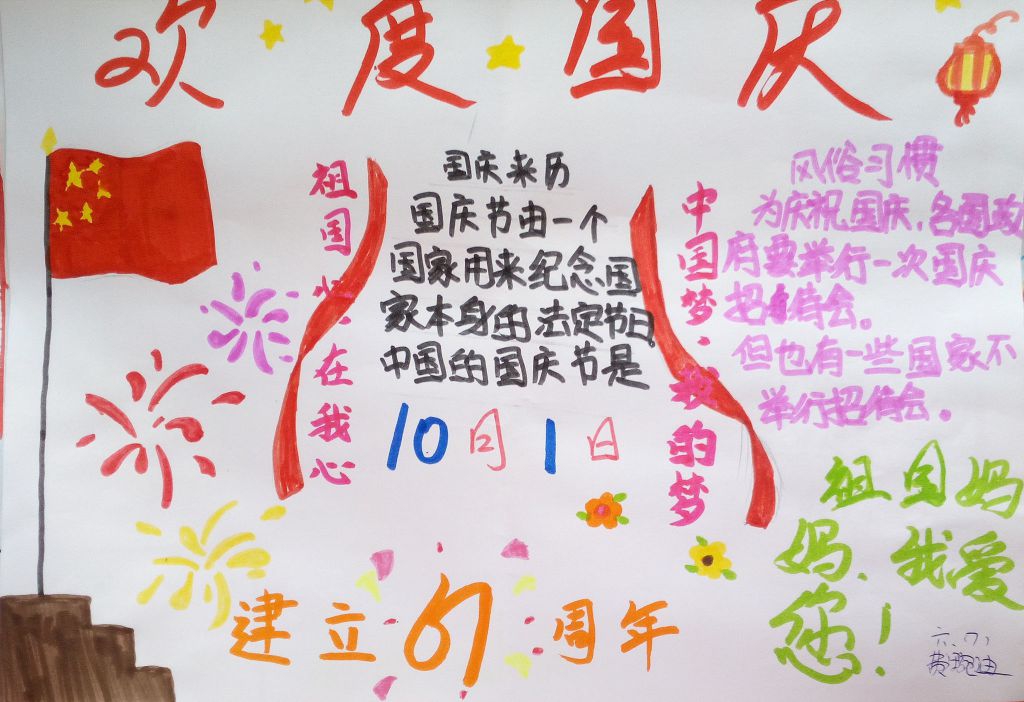 欢度国庆
祖国妈妈在我心
国庆来历
国庆节由一个
国家用来纪念国
家本身的法定节日
中国的国庆节是
10月1日
中国梦·我的梦
风俗习惯
为庆祝国庆,各国政
府要举行一次国庆
招待会。
但也有一些国家不
举行招待会。
祖国妈
妈、我爱
您!
建立67周年
六.(7)